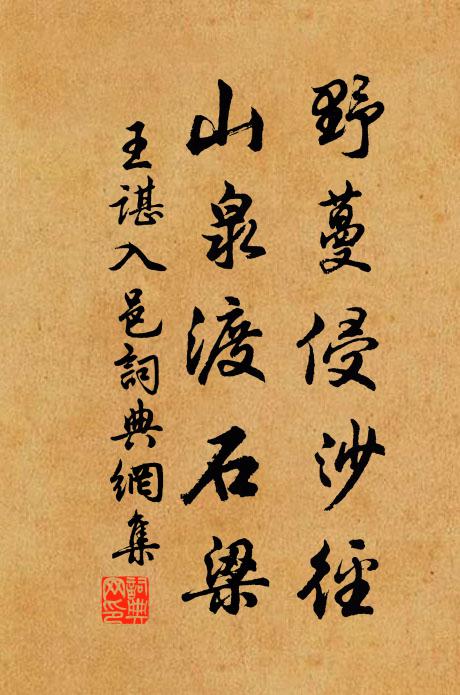 野蔓侵沙徑
山泉渡石梁
王諶入邑詞典網集
詞典網印